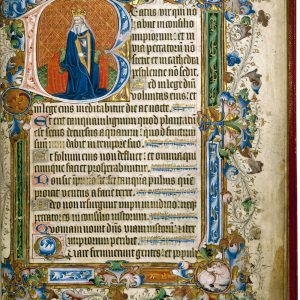 Beatus vir qui nō
abiit in consilio
impiorum: et in
via peccatorū nō
stetit et in cathedra
pestilencie nō sedit.
Sed in lege dn̄i
voluntas eius: et
in lege eius meditabitur die ac nocte.
Et erit tanquam lignum quod plantatū
est secus decursus aquarum: quod fructum
suum dabit in tempore suo.
Et folium eius non defluet: et omnia que
cumque faciet prosperabuntur.
Non sic impii non sic: set tanquā puluis quem
proicit ventus a facie terre.
Ideo non resurgunt impii in iudicio: neque
peccatores in consilio iustorum.
Quoniam nouit dn̄s viam iustorū: et iter
impiorum peribit.
Quare fremuerunt gentes: et populi